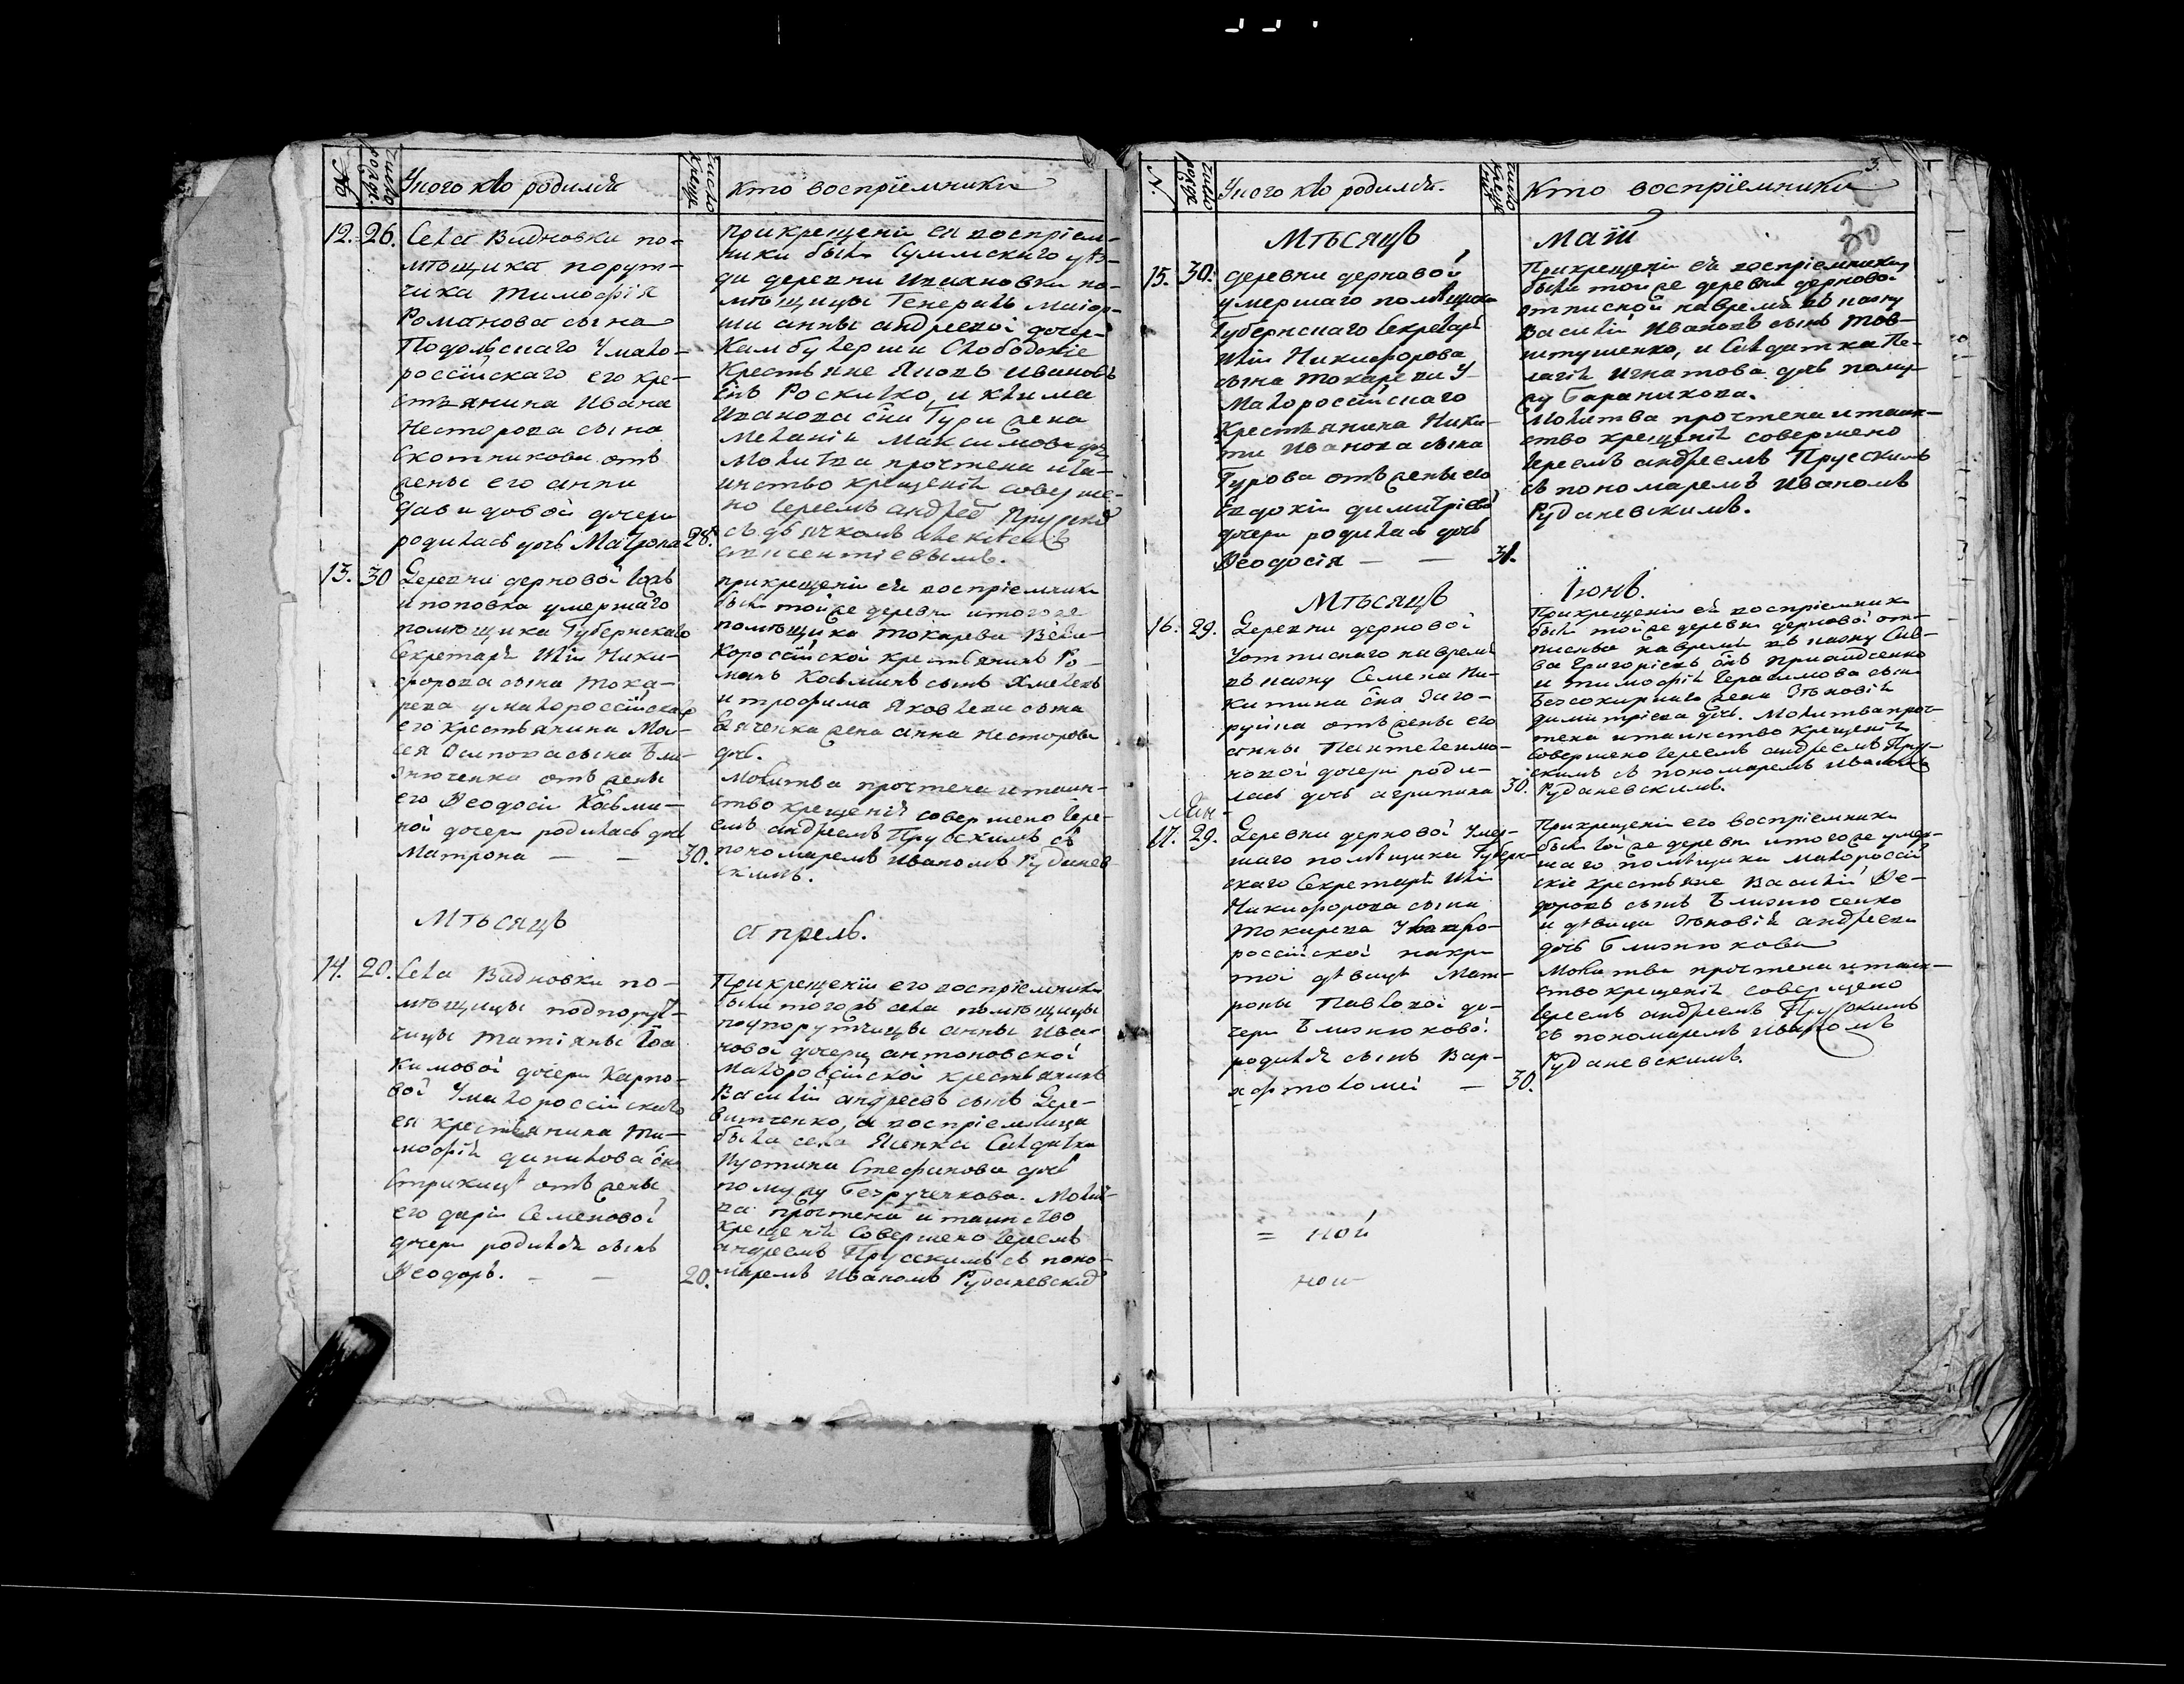 №
число рожд.
У кого кто родился
число крещ.
кто воспріемники
12. 26.
Села Видновки по-
мѣщика порут-
чика Тимофія
Романова сына
Подольскаго Умало-
россійскаго его кре-
стьянина Ивана
Несторова сына
Скотникова отъ
жены его анны
давидовой дочери
родилась дочь Матрона 28.
при крещеніи ея воспріем-
ники были Сумского уѣз-
да деревни Ивановки по-
мѣщицы Генералъ Маіор-
ши анны андреевой дочери
Крестьяне Яковъ Ивановъ
снъ и
Иванова сна жена
Меланія Максимова дочь
Молитва прочтена и та-
инство крещенія соверше-
но Іереемъ андреемъ
съ дьячкомъ
13. 30
Деревни дерновой
и поповка умершаго
помѣщика Губернскаго
Секретаря Иліи Ники-
форова сына Тока-
рева умалороссійскаго
его крестьянина Мои-
сея Осипова сына Бли-
знюченка отъ жены
его Ѳеодосіи Косьми-
ной дочери родилась дочь
Матрона — — 30.
при крещеніи ея воспріемники
были той же деревни и того же
помѣщика токарева Вели-
короссійской крестьянинъ Ро-
манъ Косьминъ сынъ Хмелевъ
и трофима Яковлева сына
жена анна несторова
дочь.
Молитва прочтена и таин-
ство крещенія совершено Іере-
емъ андреемъ Прускимъ съ
пономаремъ Иваномъ Руданев
скимъ.
Мѣсяцъ
апрель.
14. 20.
Села Видновки по-
мѣщицы подпорут-
чицы татіаны Іоа
кимовой дочери Карпо-
вой Умалороссійскаго
ея крестьянина Ти-
мофія данилова сна
отъ жены
его даріи Семеновой
дочери родился сынъ
Ѳеодоръ. — — 20.
При крещеніи его воспріемники
были того жъ села помѣщицы
подпорутчицы анны Ива-
новой дочери антоновской
малороссійской крестьянинъ
Василій андреевъ сынъ Дере-
витченко, а воспріемница
была села Солдатка
Іустина Стефанова дочь
по мужу Безрученкова. Молит-
ва прочтена и таинство
крещенія совершено Іереемъ
андреемъ Прускимъ съ поно-
маремъ Иваномъ Руданевским
№
число рожд
У кого кто родился.
число крещ
Кто воспріемники
3.
30
Мѣсяцъ
Маій
15. 30.
деревни дерновой
умершаго помѣщика
Губернскаго Секретаря
Иліи Никифорова
сына токарева У
Малороссійскаго
Крестьянина Ники-
ты Иванова сына
Гурова отъ жены его
Евдокіи димитріевой
дочери родилась дочь
Ѳеодосія — — 31.
При крещеніи ея воспріемники
были той же деревни дерновой
отписной на время въ казну
Василій Ивановъ сынъ Тов-
штушенко, и Солдатка Пе-
лагія Игнатова дочь по му-
жу Бараникова.
Молитва прочтена и таин-
ство крещенія совершено
Іереемъ андреемъ Прусскимъ
съ пономаремъ Иваномъ
Руданевскимъ.
Мѣсяцъ
Іюнь.
16. 29.
Деревни дерновой
У отписнаго на время
въ казну Семена Ни-
китина сна Заго-
руйка отъ жены его
анны Пантелеимо-
новой дочери роди-
лась дочь агрипина 30.
При крещеніи ея воспріемники
были той же деревни дерновой от-
писные на время въ казну Сав-
ва Григоріевъ снъ
и тимофія Герасимова сына
Безсокирнаго жена Зѣновія
димитріева дочь. Молитва проч-
тена и таинство крещенія
совершено Іереемъ андреемъ Пру-
скимъ съ пономаремъ Иваномъ
Руданевскимъ.
17. 29.
Деревни дерновой Умер-
шаго помѣщика Губерн-
скаго Секретаря Иліи
Никифорова сына
токарева
россійской
той дѣвицы Мат-
роны Павловой до-
чери Близнюковой
родился сынъ Вар-
ѳоломей — 30.
При крещеніи его воспріемники
были той же деревни и того же умер-
шаго помѣщика малороссій
скіе крестьяне Василій Ѳе-
доровъ сынъ Близнюченко
и дѣвица Зѣновія андреева
дочь Близнюкова
Молитва прочтена и таин-
ство крещенія совершено
Іереемъ андреемъ Прускимъ
съ пономаремъ Иваномъ
Руданевскимъ.
= ной